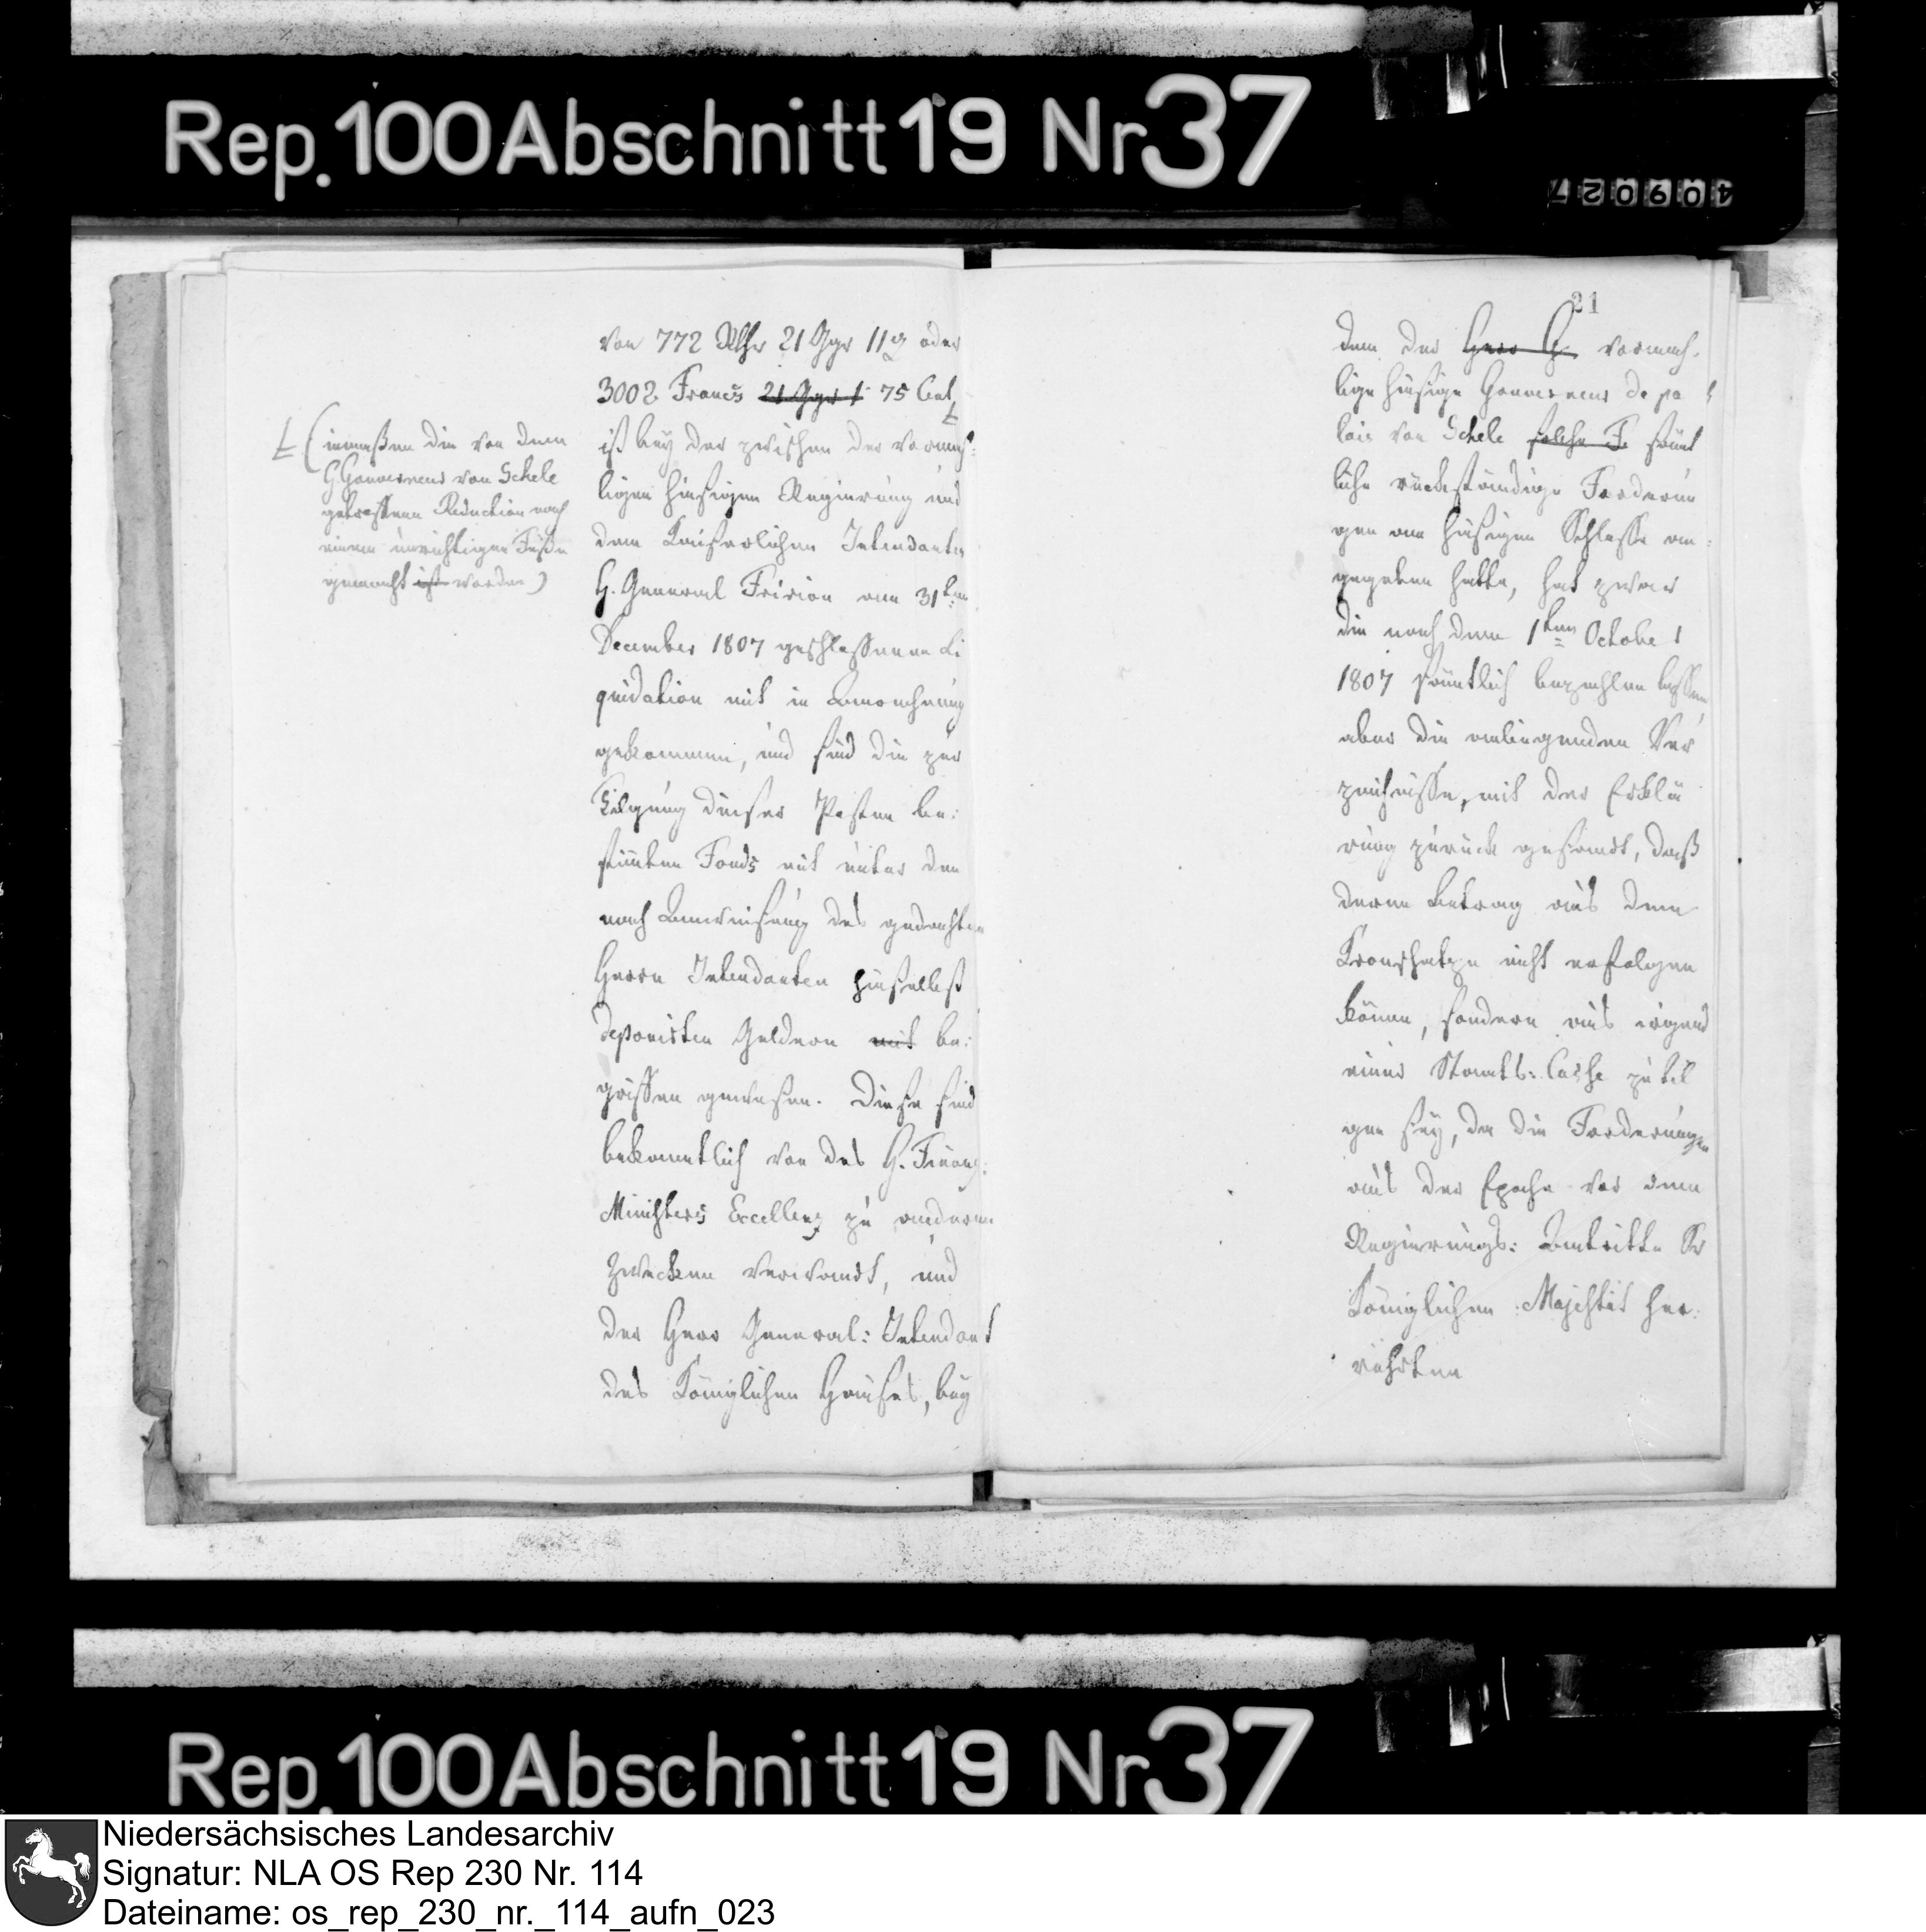 Rep. 100 Abschnitt 19 Nr 37
409027
von 772 Rthr 21 Ggr 11 ₰ oder
3002 Francs 21 Ggr 1 75 Cent
ist bey der zwischen der vormah-
ligen hiesigen Regierung und
dem Kaiserlichen Intendanten
H. General Fririon am 31ten
December 1807 geschlossenen Li
quidation mit in Anrechnung
gekommen, und sind die zur
Tilgung dieser Posten be-
stimten Fonds mit unter den
nach Anweisung des gedachten
Herrn Intendanten hieselbst
deponirten Geldern mit be-
griffen gewesen. Diese sind
bekanntlich von des H. Finanz-
Ministers Excellenz zu anderen
Zwecken verwandt, und
der Herr General-Intendant
des Königlichen Hauses, bey
(inmaßen die von dem
H Gouverneur von Schele
getroffene Reduction nach
einem unrichtigen Fuße
gemacht ist worden)
21
dem der Herr G. vormah-
lige hiesige Gouverneur de pa
lais von Schele solche F. sämt
liche rückständige Forderun
gen am hiesigen Schlosse an-
gegeben hatte, hat zwar
die nach dem 1ten October
1807 sämtlich bezahlen lassen
aber die anliegenden Ver
zeichnisse, mit der Erklä
rung zurück gesandt, daß
deren Betrag aus dem
Kronschatze nicht erfolgen
könne, sondern aus irgend
einer Staats-Casse zu til
gen sey, da die Forderungen
aus der Epoche vor dem
Regierungs-Antritte Sr
Königlichen Majestät her-
rührten
Rep. 100 Abschnitt 19 Nr 37
Niedersächsisches Landesarchiv
Signatur: NLA OS Rep 230 Nr. 114
Dateiname: os_rep_230_nr._114_aufn_023